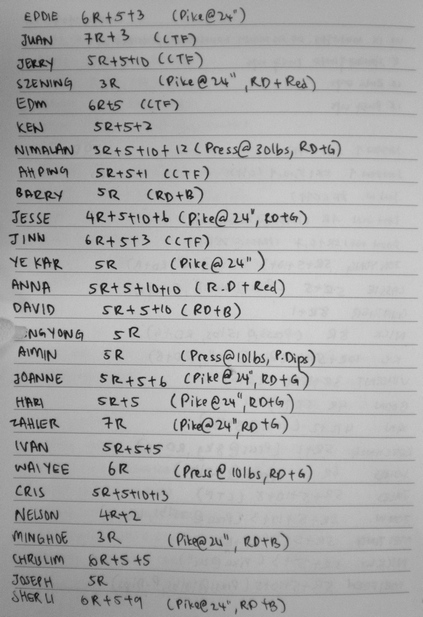 EDDIE 6R+5+3 (Pike@24")
JUAN 7R+3 (CTF)
JERRY 5R+5+10 (CTF)
SZENING 3R (Pike@24", RD+Red)
EDM 6R+5 (CTF)
KEN 5R+5+2
NIMALAN 3R+5+10+12 (Press@30lbs, RD+G)
AHPING 5R+5+1 (CTF)
BARRY 5R (RD+B)
JESSE 4R+5+10+6 (Pike@24", RD+G)
JINN 6R+5+3 (CTF)
YE KAR 5R (Pike@24")
ANNA 5R+5+10+10 (R.D+Red)
DAVID 5R+5+10 (RD+B)
NGYONG 5R
AIMIN 5R (Press@10lbs, P.Dips)
JOANNE 5R+5+6 (Pike@24", RD+G)
HARI 5R+5 (Pike@24", RD+G)
ZAHLER 7R (Pike@24", RD+G)
IVAN 5R+5+5
WAIYEE 6R (Press@10lbs, RD+G)
CRIS 5R+5+10+13
NELSON 4R+2
MINGHOE 3R (Pike@24", RD+B)
CHRISLIM 6R+5+5
JOSEPH 5R
SHERLI 6R+5+9 (Pike@24", RD+B)